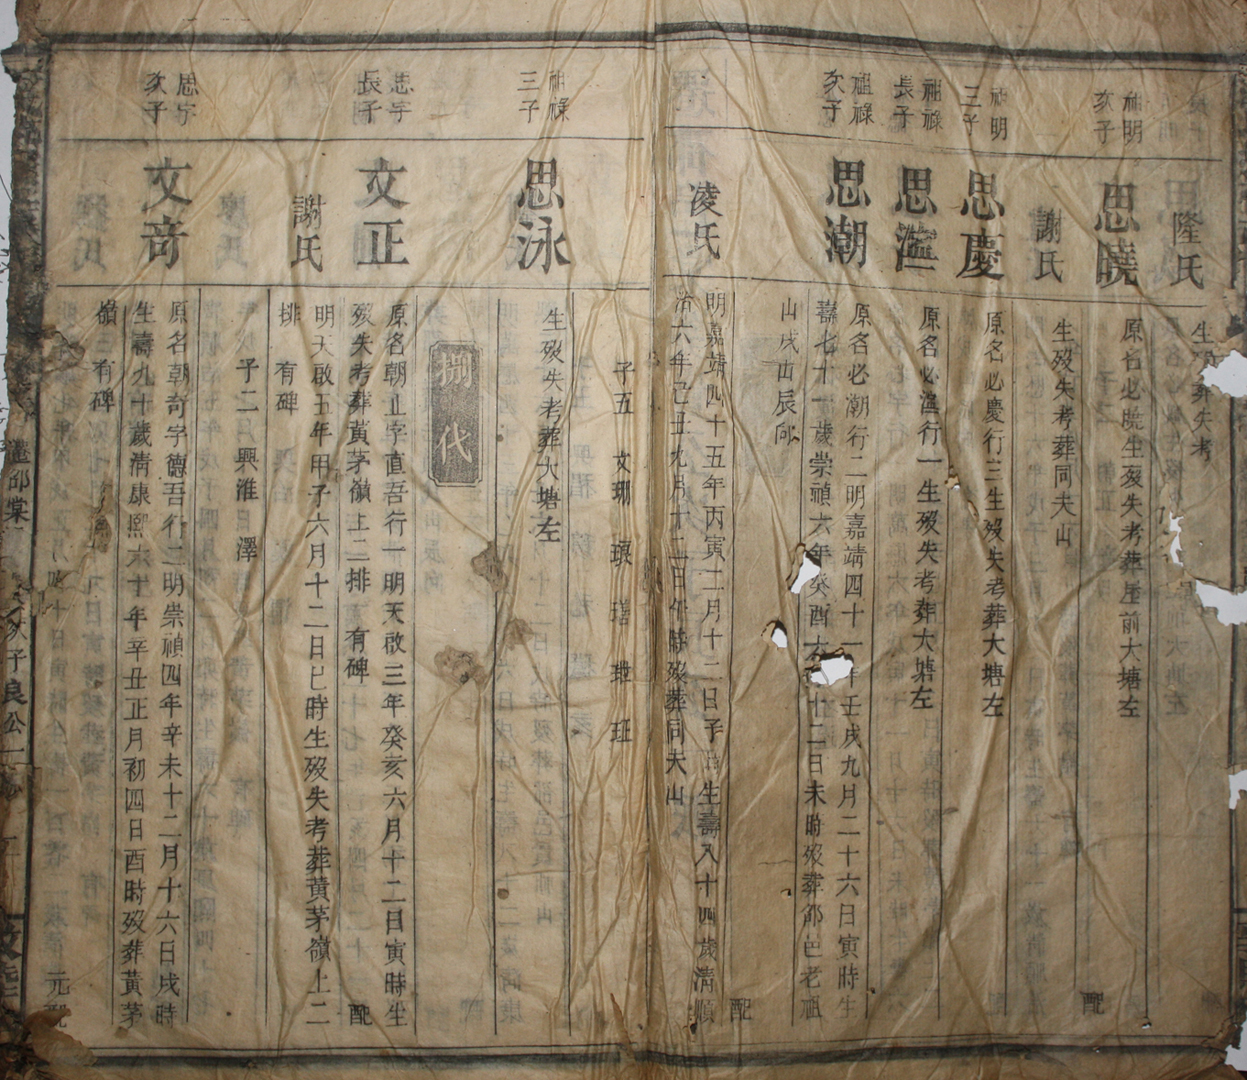 隆氏
生歿葬失考
祖明
次子
思曉
原名必曉生歿失考葬屋前大塘左
配
謝氏
生歿失考葬同夫山
祖明
三子
思慶
原名必慶行三生歿失考葬大塘左
祖祿
長子
思溢
原名必溢行一生歿失考葬大塘左
祖祿
次子
思潮
原名必潮行二明嘉靖四十一年壬戌九月二十六日寅時生
壽七十一歲崇禎六年癸酉十二日未時歿葬邵邑老祖
山戌山辰向
配
凌氏
明嘉靖四十五年丙寅二月十二日子時生壽八十四歲清順
治六年己丑九月十二日午時歿葬同夫山
子五 文珊 琅 瑨 玭 珏
祖祿
三子
思泳
生歿失考葬大塘左
捌代
志宇
長子
文正
原名朝正字直吾行一明天啟三年癸亥六月十二日寅時生
歿失考葬黃茅嶺上二排 有碑
配
謝氏
明天啟五年甲子六月十二日巳時生歿失考葬黃茅嶺上二
排 有碑
子二 興淮 澤
思宇
次子
文奇
原名朝奇字德吾行二明崇禎四年辛未十二月十六日戌時
生壽九十歲清康熙六十年辛丑正月初四日酉時歿葬黃茅
嶺三 有碑
元配
次子良公